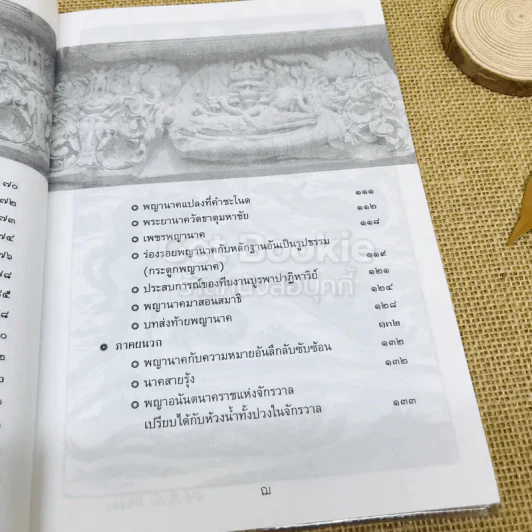 ๗๐
๗๒
๗๓
๗๔
๗๖
๗๘
๘๕
๘๘
พญานาคแปลงที่คำชะโนด ๑๑๑
พระยานาควัดธาตุมหาชัย ๑๑๒
เพชรพญานาค ๑๑๘
ร่องรอยพญานาคกับหลักฐานอันเป็นรูปธรรม
(กระดูกพญานาค) ๑๑๙
ประสบการณ์ของทีมงานบูรพาปาฏิหาริย์ ๑๒๑
พญานาคมาสอนสมาธิ ๑๒๔
บทส่งท้ายพญานาค ๑๒๘
ภาคผนวก ๑๓๒
พญานาคกับความหมายอันลึกลับซับซ้อน ๑๓๒
นาคสายรุ้ง ๑๓๒
พญาอนันตนาคราชแห่งจักรวาล
เปรียบได้กับห้วงน้ำทั้งปวงในจักรวาล ๑๓๓
Bookie